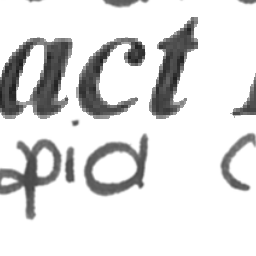 act
pid